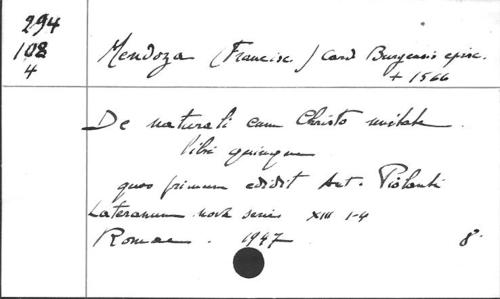 294
108
4
Mendoza (Francisc.) Card Burgensis episc.
+ 1566
De naturali cum Christo unitate
libri quinque
quos primum edidit Ant. Piolanti
Lateranum nova series XIII 1-4
Romae. 1947 8°